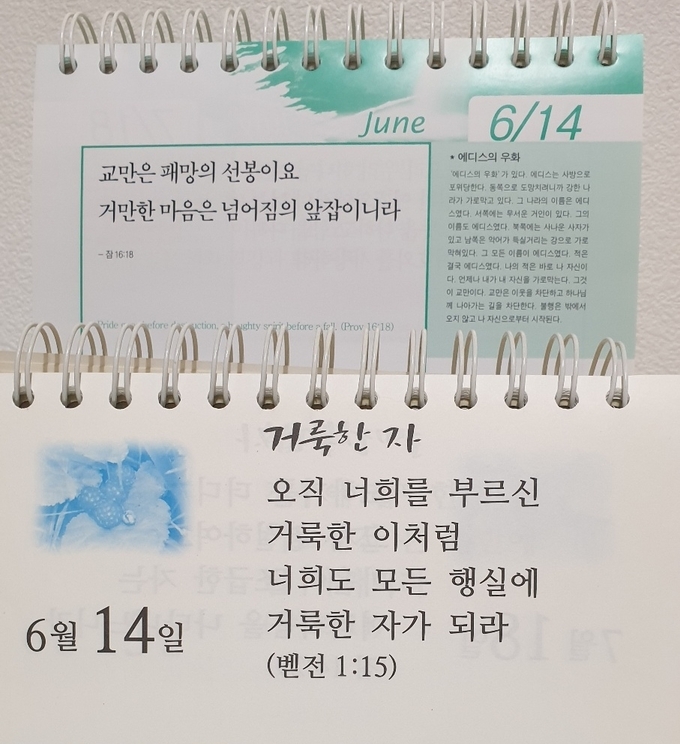 June
6/14
교만은 패망의 선봉이요
거만한 마음은 넘어짐의 앞잡이니라
- 잠 16:18
Pride before a haughty spirit before a fall. (Prov 16:18)
• 에디스의 우화
'에디스의 우화'가 있다. 에디스는 사방으로
포위당한다. 동쪽으로 도망치려니까 강한 나
라가 가로막고 있다. 그 나라의 이름은 에디
스였다. 서쪽에는 무서운 거인이 있다. 그의
이름도 에디스였다. 북쪽에는 사나운 사자가
있고 남쪽은 악어가 득실거리는 강으로 가로
막혀있다. 그 모든 이름이 에디스였다. 적은
결국 에디스였다. 나의 적은 바로 나 자신이
다. 언제나 내가 내 자신을 가로막는다. 그것
이 교만이다. 교만은 이웃을 차단하고 하나님
께 나아가는 길을 차단한다. 불행은 밖에서
오지 않고 나 자신으로부터 시작된다.
거룩한 자
오직 너희를 부르신
거룩한 이처럼
너희도 모든 행실에
거룩한 자가 되라
(벧전 1:15)
6월 14일